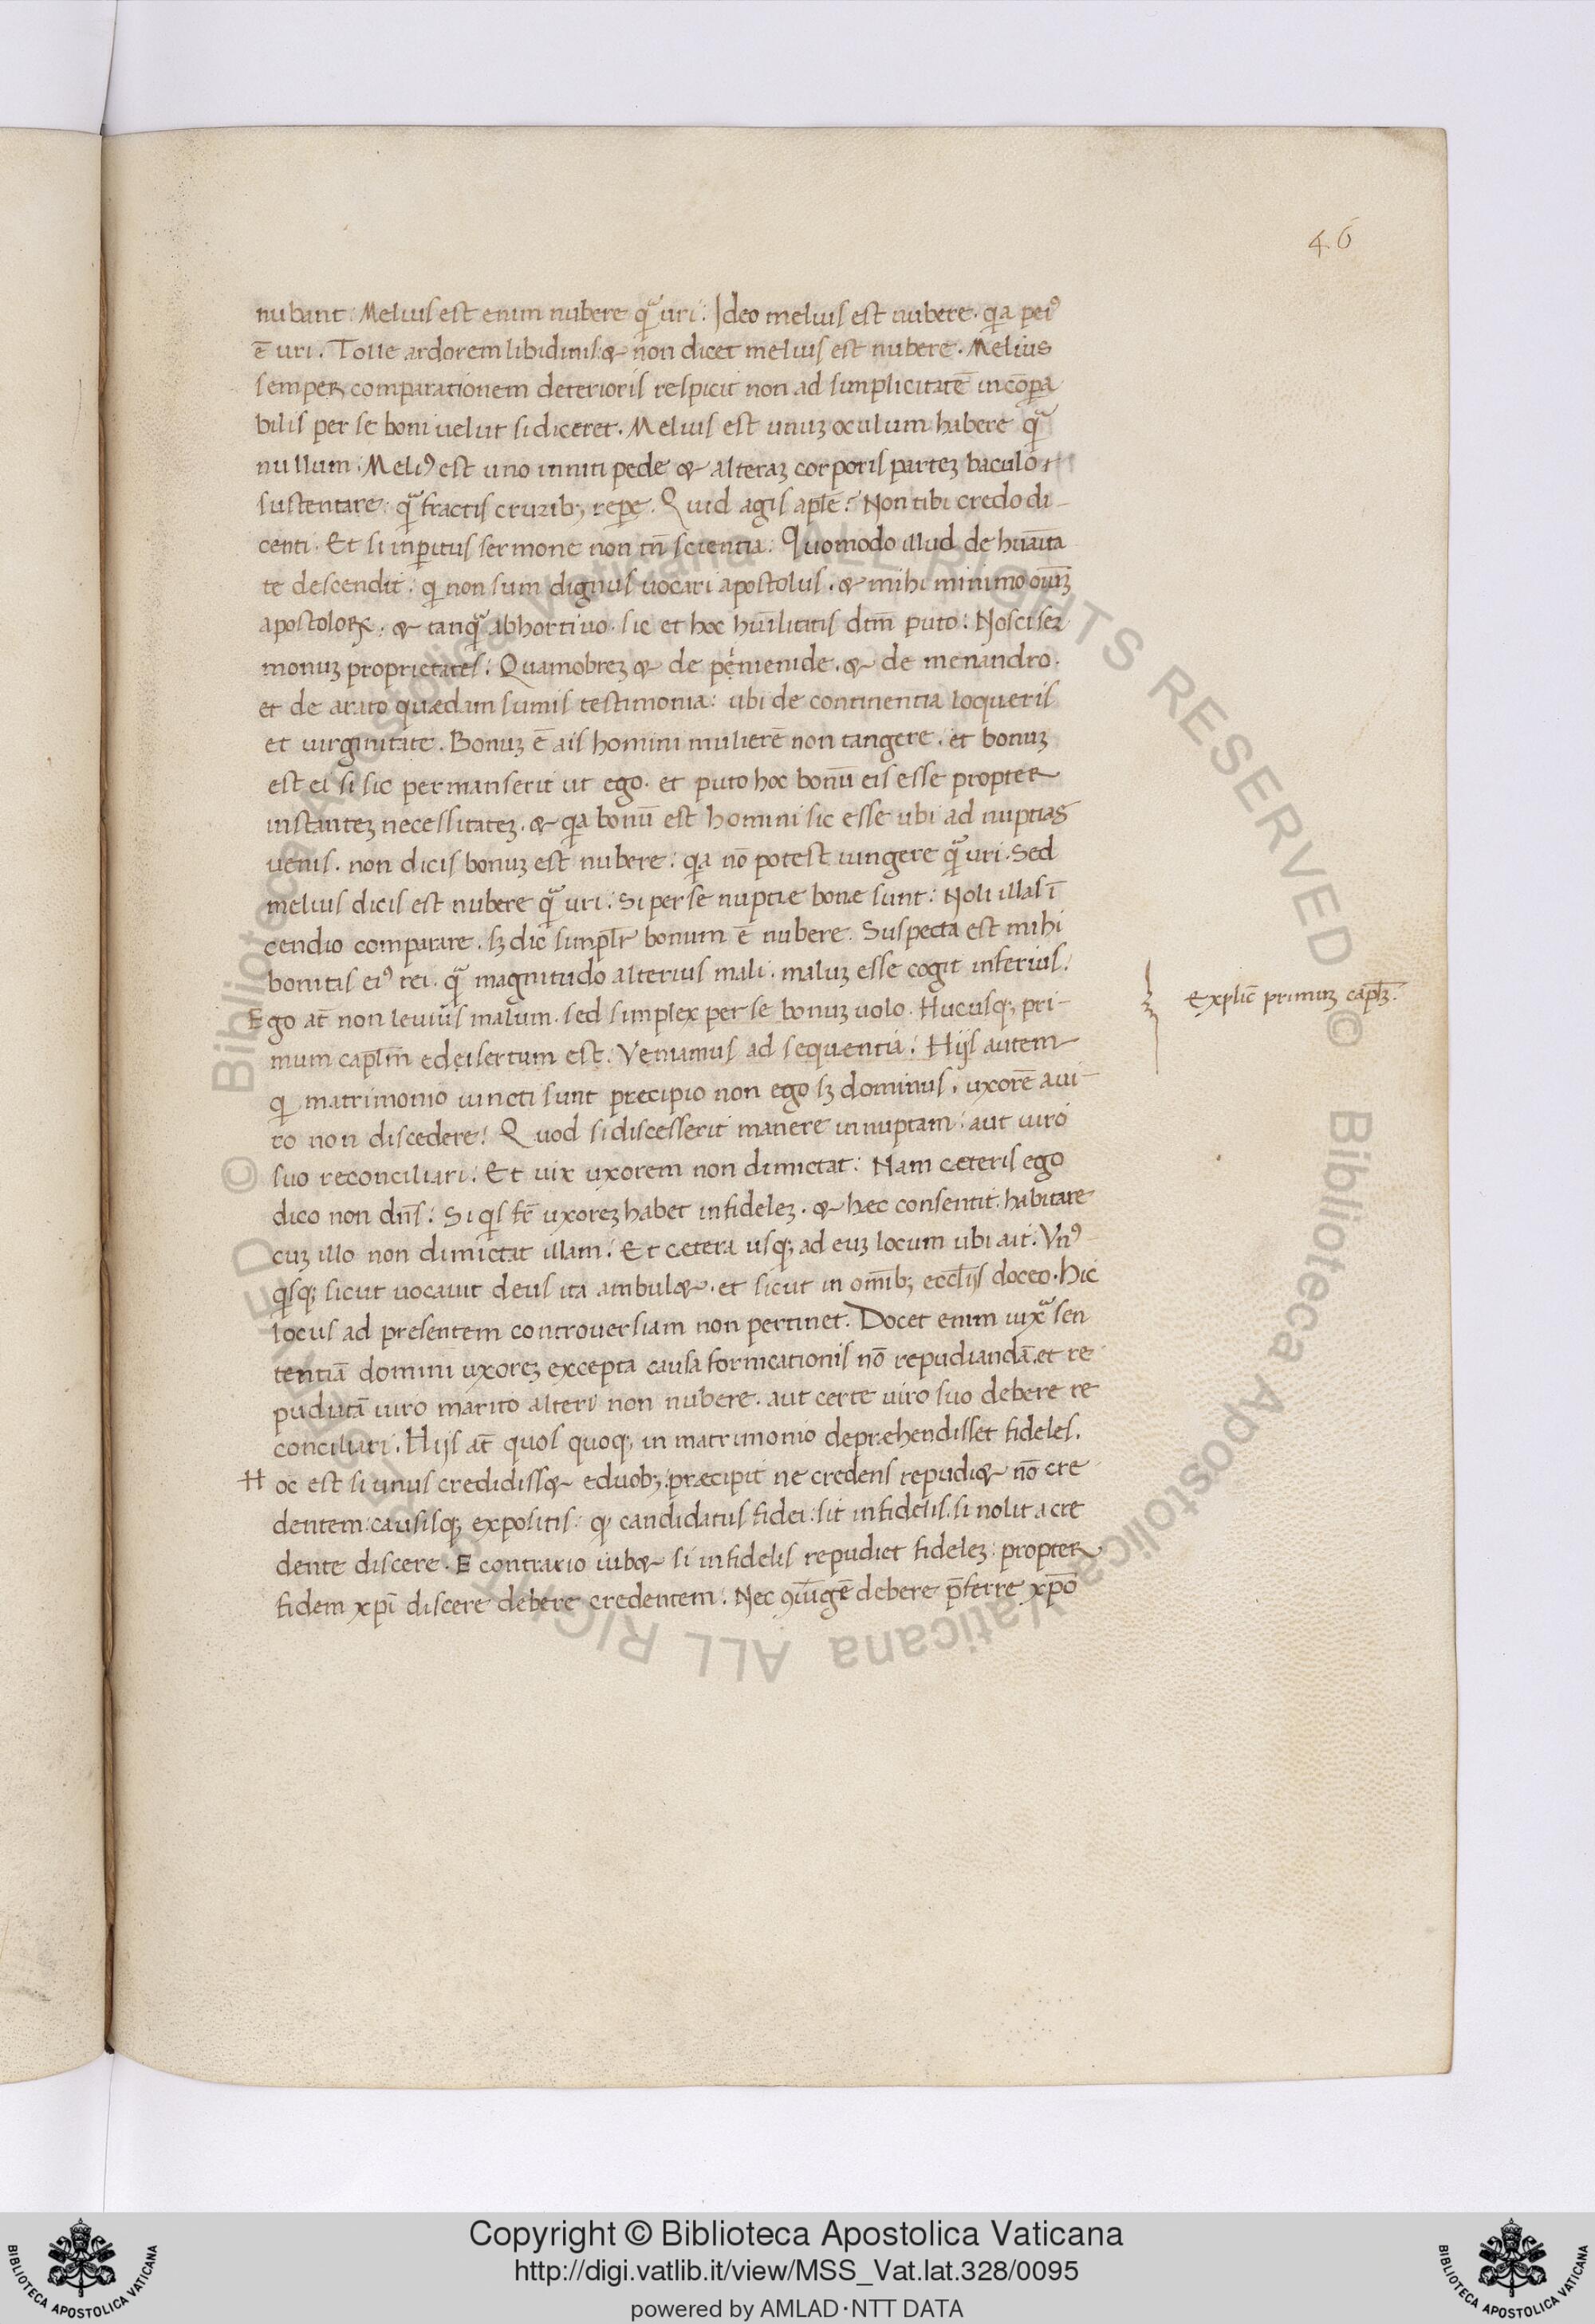 46
nubant: Melius est enim nubere qᷓ uri: Ideo melius est nubere. qͥa peiꝰ
ē uri. Tolle ardorem libidinis: & non dicet melius est nubere. Melius
semper comparationem deterioris respicit non ad simplicitatē incōpa
bilis per se boni uelut si diceret. Melius est unuꝫ oculum habere qᷓ
nullum: Meliꝰ est uno inniti pede & alteraꝫ corporis parteꝫ baculo
sustentare: qᷓ fractis crurib; repe. Quid agis apłe? Non tibi credo di-
centi. Et si inꝑitus sermone non tn̄ scientia. Quomodo illud de huāita
te descendit: qͥ non sum dignus uocari apostolus. & mihi minimo oūꝫ
apostoloꝝ: & tanqᷓ abhortiuo. sic et hoc hūilitatis dcm̄ puto: Nosci ser
monuꝫ proprietates: Quamobreꝫ & de pęmenide. & de menandro.
et de arato quædam sumis testimonia: ubi de continentia loqueris
et uirginitate. Bonuꝫ ē ais homini mulierē non tangere. et bonuꝫ
est ei si sic permanserit ut ego. et puto hoc bonū eis esse propter
instanteꝫ necessitateꝫ. & qͥa bonū est homini sic esse ubi ad nuptias
uenis. non dicis bonuꝫ est nubere: qͥa nō potest iungere qᷓ uri. Sed
melius dicis est nubere qᷓ uri: Si per se nuptie bonæ sunt: Noli illas ī
cendio comparare. sꝫ dic simplr̄ bonum ē nubere. Suspecta est mihi
bonitas eiꝰ rei. qᷓ magnitudo alterius mali. maluꝫ esse cogit inferius:
Ego at̄ non leuius malum. sed simplex per se bonuꝫ uolo. Hucusq; pri-
mum capłm edeisertum est: Veniamus ad sequentia: Hijs autem
qͥ matrimonio iuncti sunt precipio non ego sꝫ dominus. uxorē a ui-
ro non discedere: Quod si discesserit manere innuptam: aut uiro
suo reconciliari: Et uix uxorem non dimictat: Nam ceteris ego
dico non dn̄s: Si qͥs fr̄ uxoreꝫ habet infideleꝫ. & hæc consentit habitare
cuꝫ illo non dimictat illam: Et cetera usq; ad euꝫ locum ubi ait: Vnꝰ
qͥsq; sicut uocauit deus ita ambul&. et sicut in om̄ib; eccłijs doceo. Hic
locus ad presentem controuersiam non pertinet. Docet enim uixᷓ sen
tentiā domini uxoreꝫ excepta causa fornicationis nō repudiandā. et re
pudiatā uiro marito alteri non nubere. aut certe uiro suo debere re
conciliari. Hijs at̄ quos quoq; in matrimonio depræhendisset fideles.
Hoc est si unus credidiss& eduob; præcipit ne credens repudi& nō cre
dentem: causisq; expositis: qͥ candidatus fidei: sit infidelis. si nolit a cre
dente discere. E contrario iub& si infidelis repudiet fideleꝫ: propter
fidem xp̄i discere debere credentem: Nec ꝯiugē debere p̄ferre xp̄o
Explic̄ primuꝫ capłꝫ.
© Biblioteca Apostolica Vaticana ALL RIGHTS RESERVED © Biblioteca Apostolica Vaticana ALL RIGHTS RESERVED
Copyright © Biblioteca Apostolica Vaticana
http://digi.vatlib.it/view/MSS_Vat.lat.328/0095
powered by AMLAD·NTT DATA
BIBLIOTECA APOSTOLICA VATICANA
BIBLIOTECA APOSTOLICA VATICANA